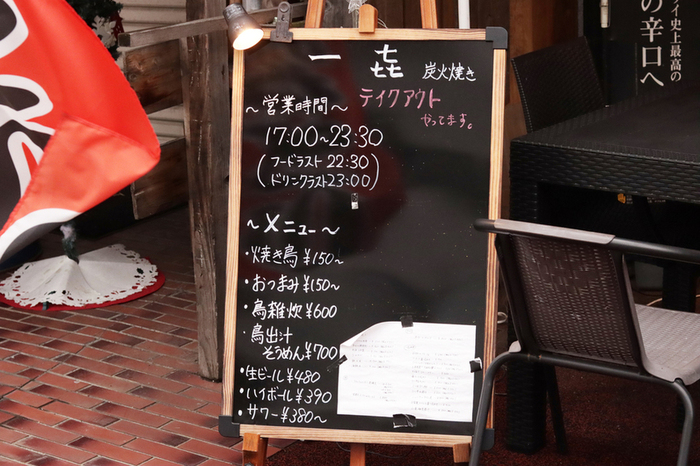 一㐂 炭火焼き
テイクアウト
やってます。
～営業時間～
17:00～23:30
(フードラスト 22:30
ドリンクラスト23:00)
～メニュー～
・焼き鳥 ¥150～
・おつまみ ¥150～
・鳥雑炊 ¥600
・鳥出汁
そうめん ¥700
・生ビール ¥480
・ハイボール ¥390
・サワー ¥380～
イ史上最高の
の辛口へ